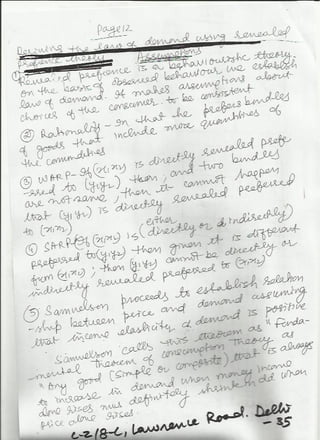 Page 12
Deriving the law of demand using revealed
prefence theory
Assumptions
① Revealed prefience is a behaviouristic theory.
on the basis of observed behaviour we establish
law of demand. It makes assumptions about
choices of the consumer. to be consistent
② Rationality - In that he prefers bundles
of goods that include more quantities of
the commodities
③ WARP - If (x1x2) is directly revealed prefe
-rred to (y1y2) then, and two bundles
are not same, then it cannot happen
that (y1y2) is directly revealed preferred
to (x1x2)
either
④ SARP If (x1x2) is (directly or indirectly)
preferred to (y1y2) then given it is different
from (x1x2); then (y1y2) cannot be directly or
indirectly revealed preferred to (x1x2)
⑤ Samuelson proceeds to establish relation
-ship between price and demand assuming
that income elasticity of demand is positive
Samuelson calls this theorem as "Funda-
mental theorem of consumption Theory as
"Any good (simple or composite) that is always
to increase in demand when money income
alone rises must definitely shrink in dd when
price alone rises.
C-2/8-C, Lawrence Road. Delhi
-35